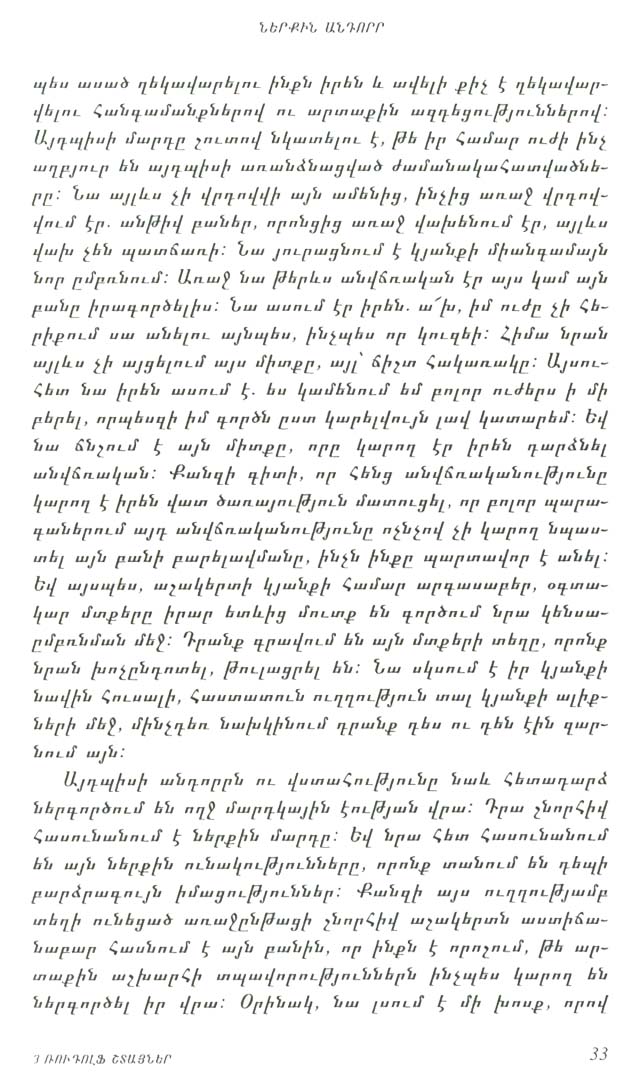 ՆԵՐՔԻՆ ԱՆԴՈՐՐ
պես ասած ղեկավարելու ինքն իրեն և ավելի քիչ է ղեկավար-
վելու հանգամանքներով ու արտաքին ազդեցություններով:
Այդպիսի մարդը շուտով նկատելու է, թե իր համար ուժի ինչ
աղբյուր են այդպիսի առանձնացված ժամանակահատվածնե-
րը: Նա այլևս չի վրդովվի այն ամենից, ինչից առաջ վրդով-
վում էր. անթիվ բաներ, որոնցից առաջ վախենում էր, այլևս
վախ չեն պատճառի: Նա յուրացնում է կյանքի միանգամայն
նոր ըմբռնում: Առաջ նա թերևս անվճռական էր այս կամ այն
բանը իրագործելիս: Նա ասում էր իրեն. ա՜խ, իմ ուժը չի հե-
րիքում սա անելու այնպես, ինչպես որ կուզեի: Հիմա նրան
այլևս չի այցելում այս միտքը, այլ՝ ճիշտ հակառակը: Այսու-
հետ նա իրեն ասում է. ես կամենում եմ բոլոր ուժերս ի մի
բերել, որպեսզի իմ գործն ըստ կարելվույն լավ կատարեմ: Եվ
նա ճնշում է այն միտքը, որը կարող էր իրեն դարձնել
անվճռական: Քանզի գիտի, որ հենց անվճռականությունը
կարող է իրեն վատ ծառայություն մատուցել, որ բոլոր պարա-
գաներում այդ անվճռականությունը ոչնչով չի կարող նպաս-
տել այն բանի բարելավմանը, ինչն ինքը պարտավոր է անել:
Եվ այսպես, աշակերտի կյանքի համար արգասաբեր, օգտա-
կար մտքերը իրար ետևից մուտք են գործում նրա կենսա-
ըմբռնման մեջ: Դրանք գրավում են այն մտքերի տեղը, որոնք
նրան խոչընդոտել, թուլացրել են: Նա սկսում է իր կյանքի
նավին հուսալի, հաստատուն ուղղություն տալ կյանքի ալիք-
ների մեջ, մինչդեռ նախկինում դրանք դես ու դեն էին զար-
նում այն:
Այդպիսի անդորրն ու վստահությունը նաև հետադարձ
ներգործում են ողջ մարդկային էության վրա: Դրա շնորհիվ
հասունանում է ներքին մարդը: Եվ նրա հետ հասունանում
են այն ներքին ունակությունները, որոնք տանում են դեպի
բարձրագույն իմացություններ: Քանզի այս ուղղությամբ
տեղի ունեցած առաջընթացի շնորհիվ աշակերտն աստիճա-
նաբար հասնում է այն բանին, որ ինքն է որոշում, թե ար-
տաքին աշխարհի տպավորություններն ինչպես կարող են
ներգործել իր վրա: Օրինակ, նա լսում է մի խոսք, որով
3 ՌՈՒԴՈԼՖ ՇՏԱՅՆԵՐ
33